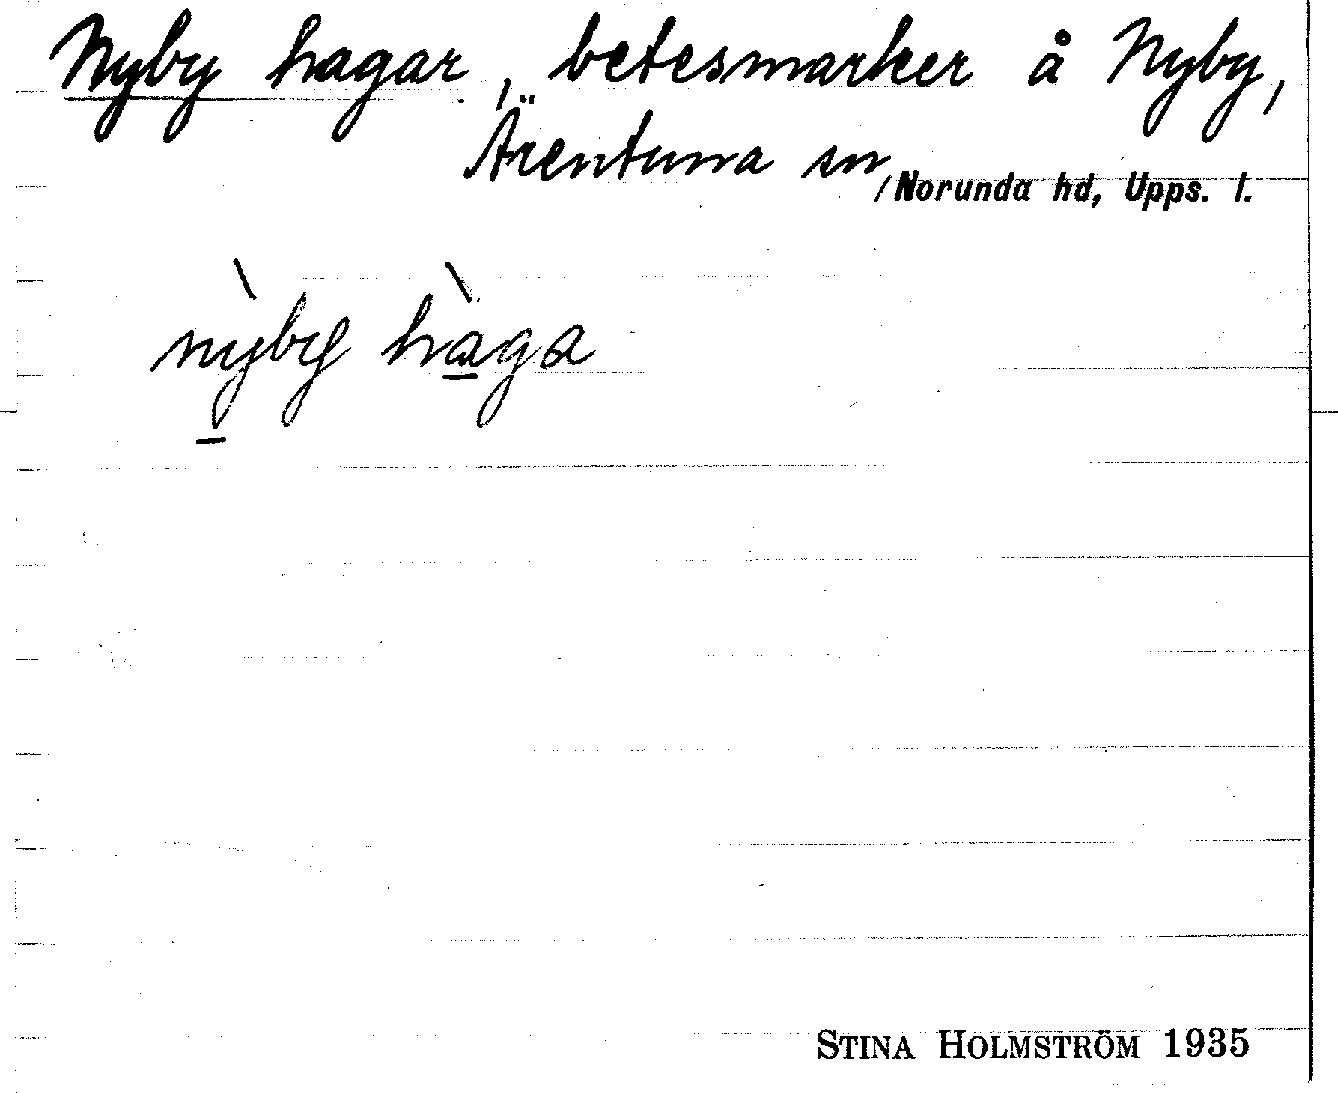 Nyby hagar, betesmarker å Nyby,
Ärentuna sn, Norunda hd, Upps. l.
nỳby hàga
STINA HOLMSTRÖM 1935